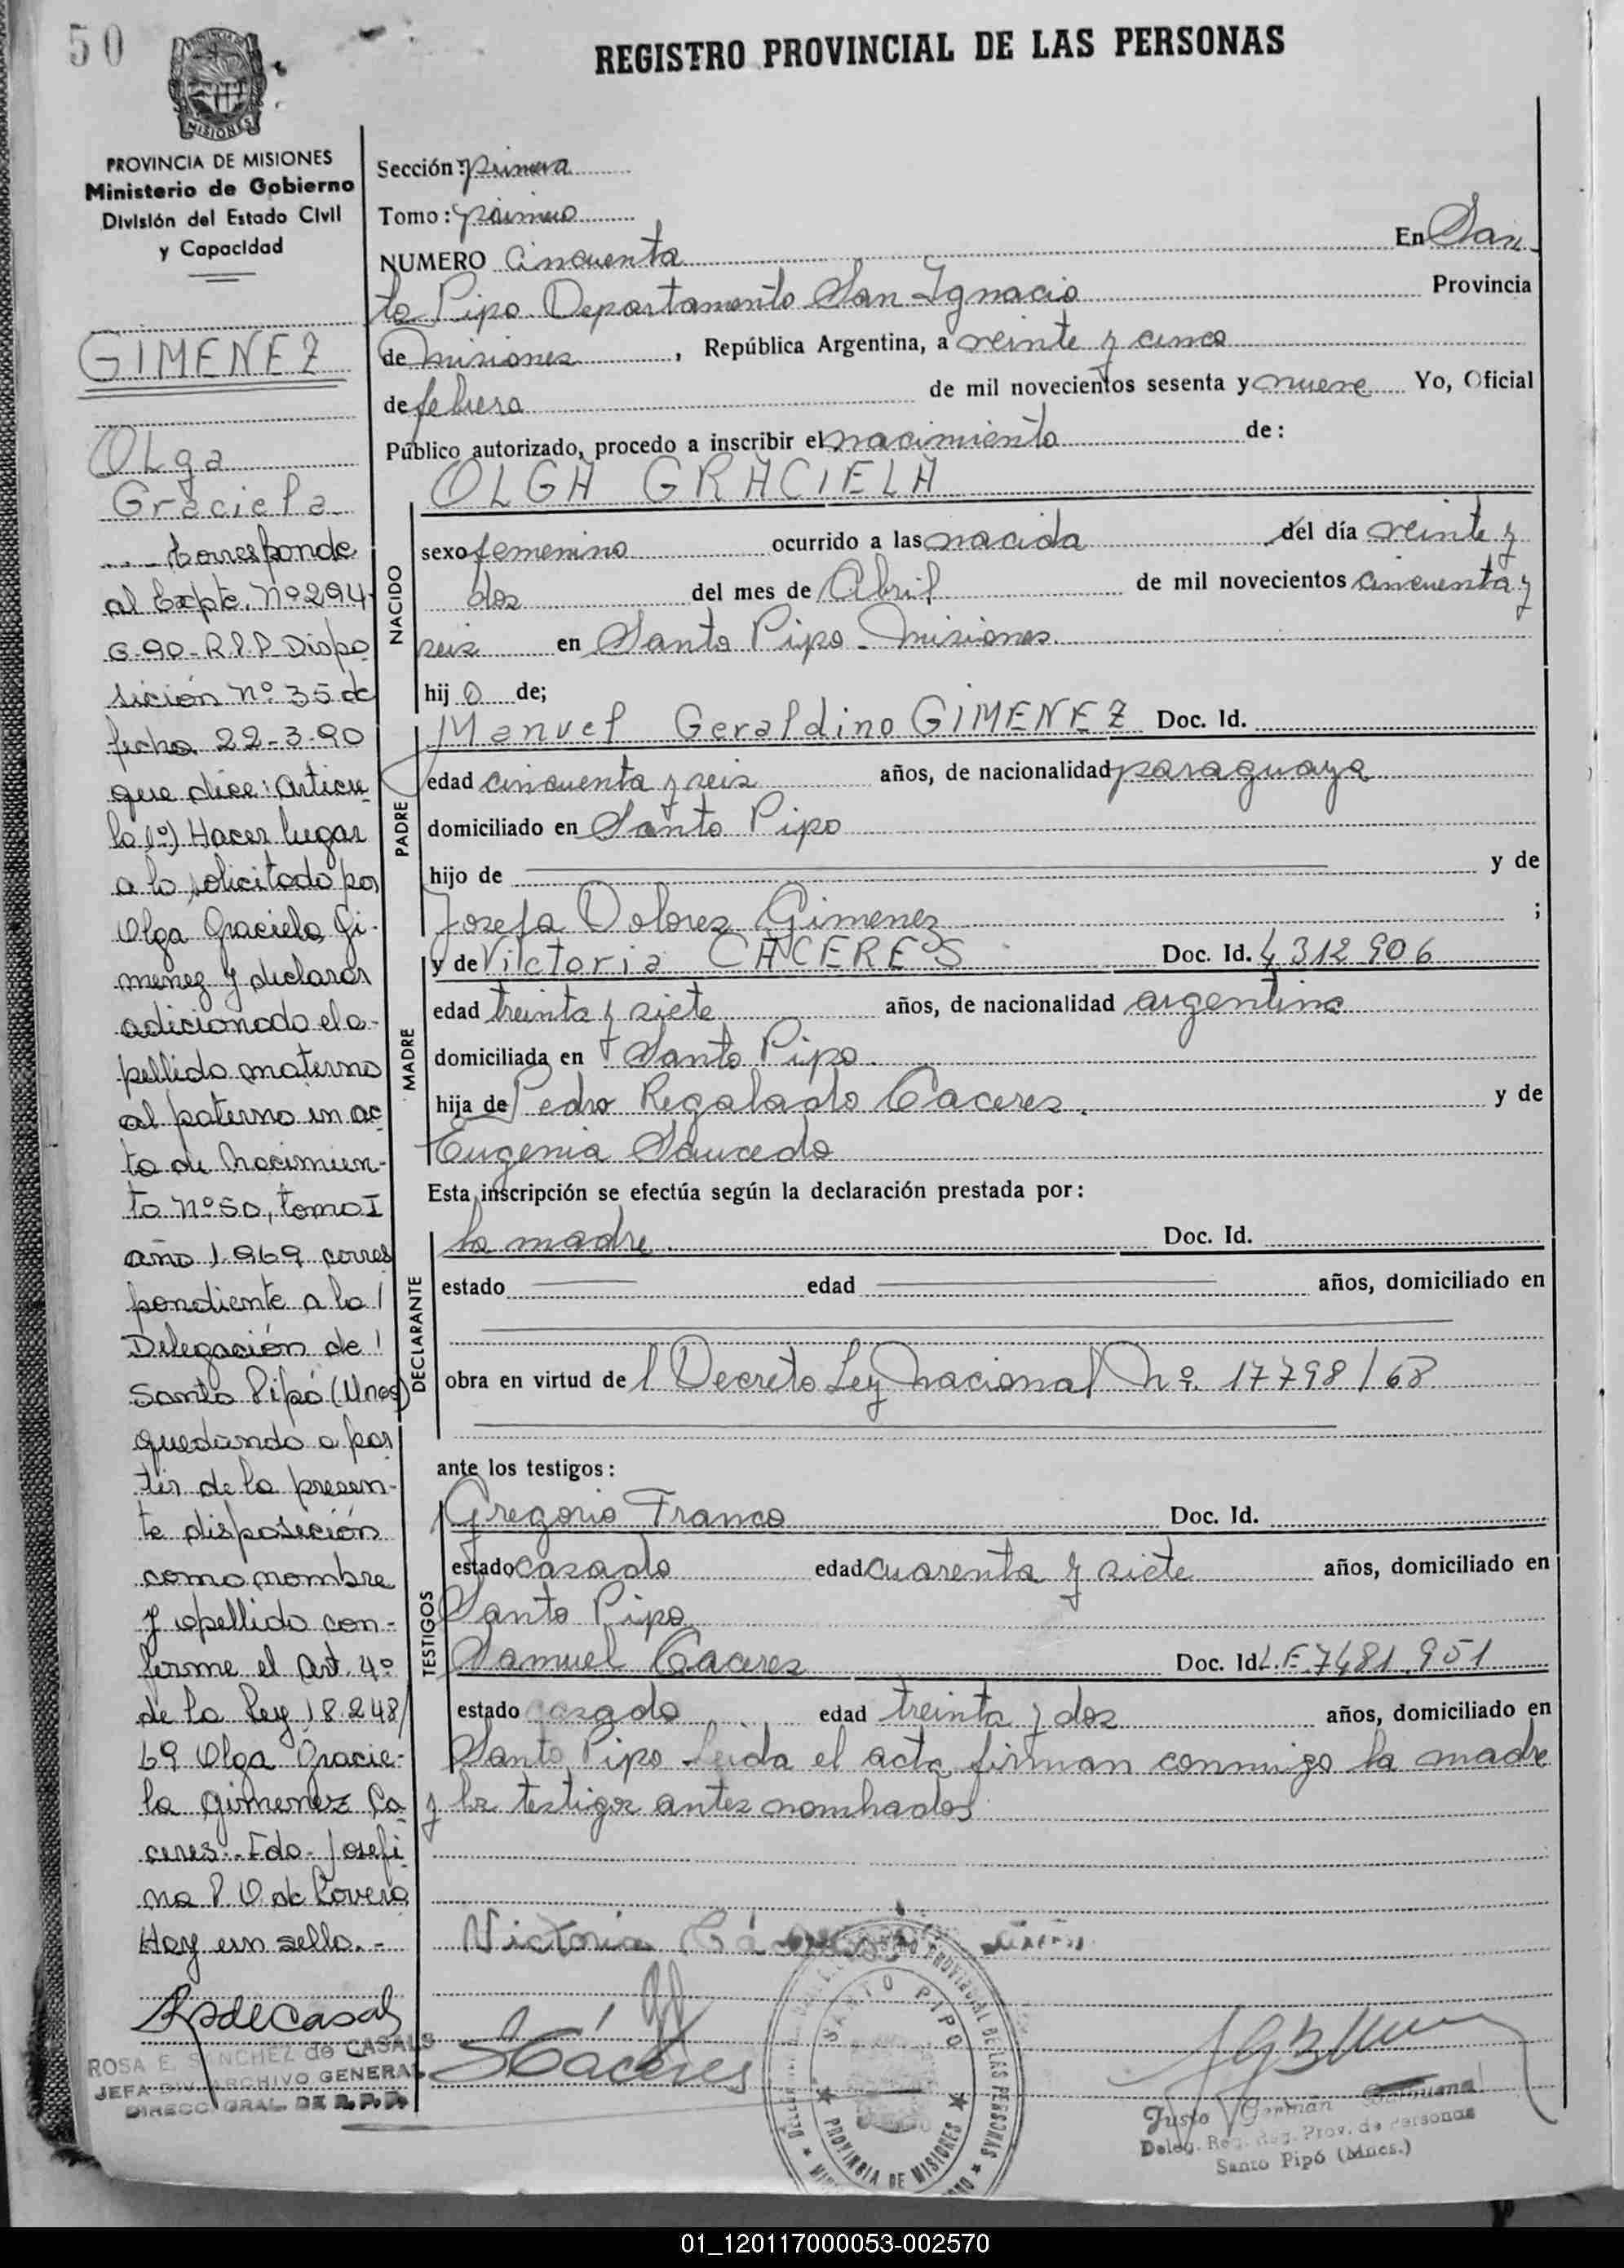 50
REGISTRO PROVINCIAL DE LAS PERSONAS
MISIONES
PROVINCIA DE MISIONES
Ministerio de Gobierno
División del Estado Civil
y Capacidad
GIMENEZ
Olga
Graciela
Corresponde
al Expte. Nº 294
G-90-R.P.P. Dispo
sición nº 35 de
fecha 22-3-90
que dice: Articu
lo 1º) Hacer lugar
a lo solicitado por
Olga Graciela Gi-
menez y declarar
adicionado el a-
pellido materno
al paterno en ac
ta de Nacimien-
to nº 50, tomo I
año 1.969 corres
pondiente a la /
Delegación de /
Santo Pipó (Mnes)
quedando a par
tir de la presen-
te disposición
como nombre
y apellido con-
forme el Art. 4º
de la Ley 18.248/
69 Olga Gracie-
la Gimenez Ca
ceres.- Fdo. Josefi
na P. V. de Lovera
Hay un sello.-
RSdeCasals
ROSA E. SANCHEZ de CASALS
JEFA DIV. ARCHIVO GENERAL
DIRECC GRAL. DE R.P.P.
Sección: primera
Tomo: primero
NUMERO Cincuenta En San
to Pipo Departamento San Ignacio Provincia
de misiones, República Argentina, a veinte y cinco
de febrero de mil novecientos sesenta y nueve Yo, Oficial
Público autorizado, procedo a inscribir el nacimiento de:
OLGA GRACIELA
NACIDO
sexo femenino ocurrido a las nacida del día veinte y
dos del mes de Abril de mil novecientos cincuenta y
seis en Santo Pipo - misiones
hij o de;
PADRE
Manuel Geraldino GIMENEZ Doc. Id.
edad cincuenta y seis años, de nacionalidad paraguaya
domiciliado en Santo Pipo
hijo de y de
Josefa Dolores Gimenez ;
MADRE
y de Victoria CACERES Doc. Id. 4.312.906
edad treinta y siete años, de nacionalidad argentina
domiciliada en Santo Pipo.
hija de Pedro Regalado Caceres y de
Eugenia Saucedo
Esta inscripción se efectúa según la declaración prestada por:
DECLARANTE
la madre Doc. Id.
estado edad años, domiciliado en
obra en virtud de l Decreto Ley Nacional Nº 17798/68
ante los testigos:
TESTIGOS
Gregorio Franco Doc. Id.
estado casado edad cuarenta y siete años, domiciliado en
Santo Pipo
Samuel Caceres Doc. Id. L.E. 7.481.951
estado casado edad treinta y dos años, domiciliado en
Santo Pipo Leida el acta firman conmigo la madre
y los testigos antes nombrados
Victoria
SCáceres
SANTO PIPO
PROVINCIA DE MISIONES
PROVINCIAL DE LAS PERSONAS
Justo Germán Balbuena
Deleg. Reg. Prov. de Personas
Santo Pipó (Mnes.)
01_120117000053-002570